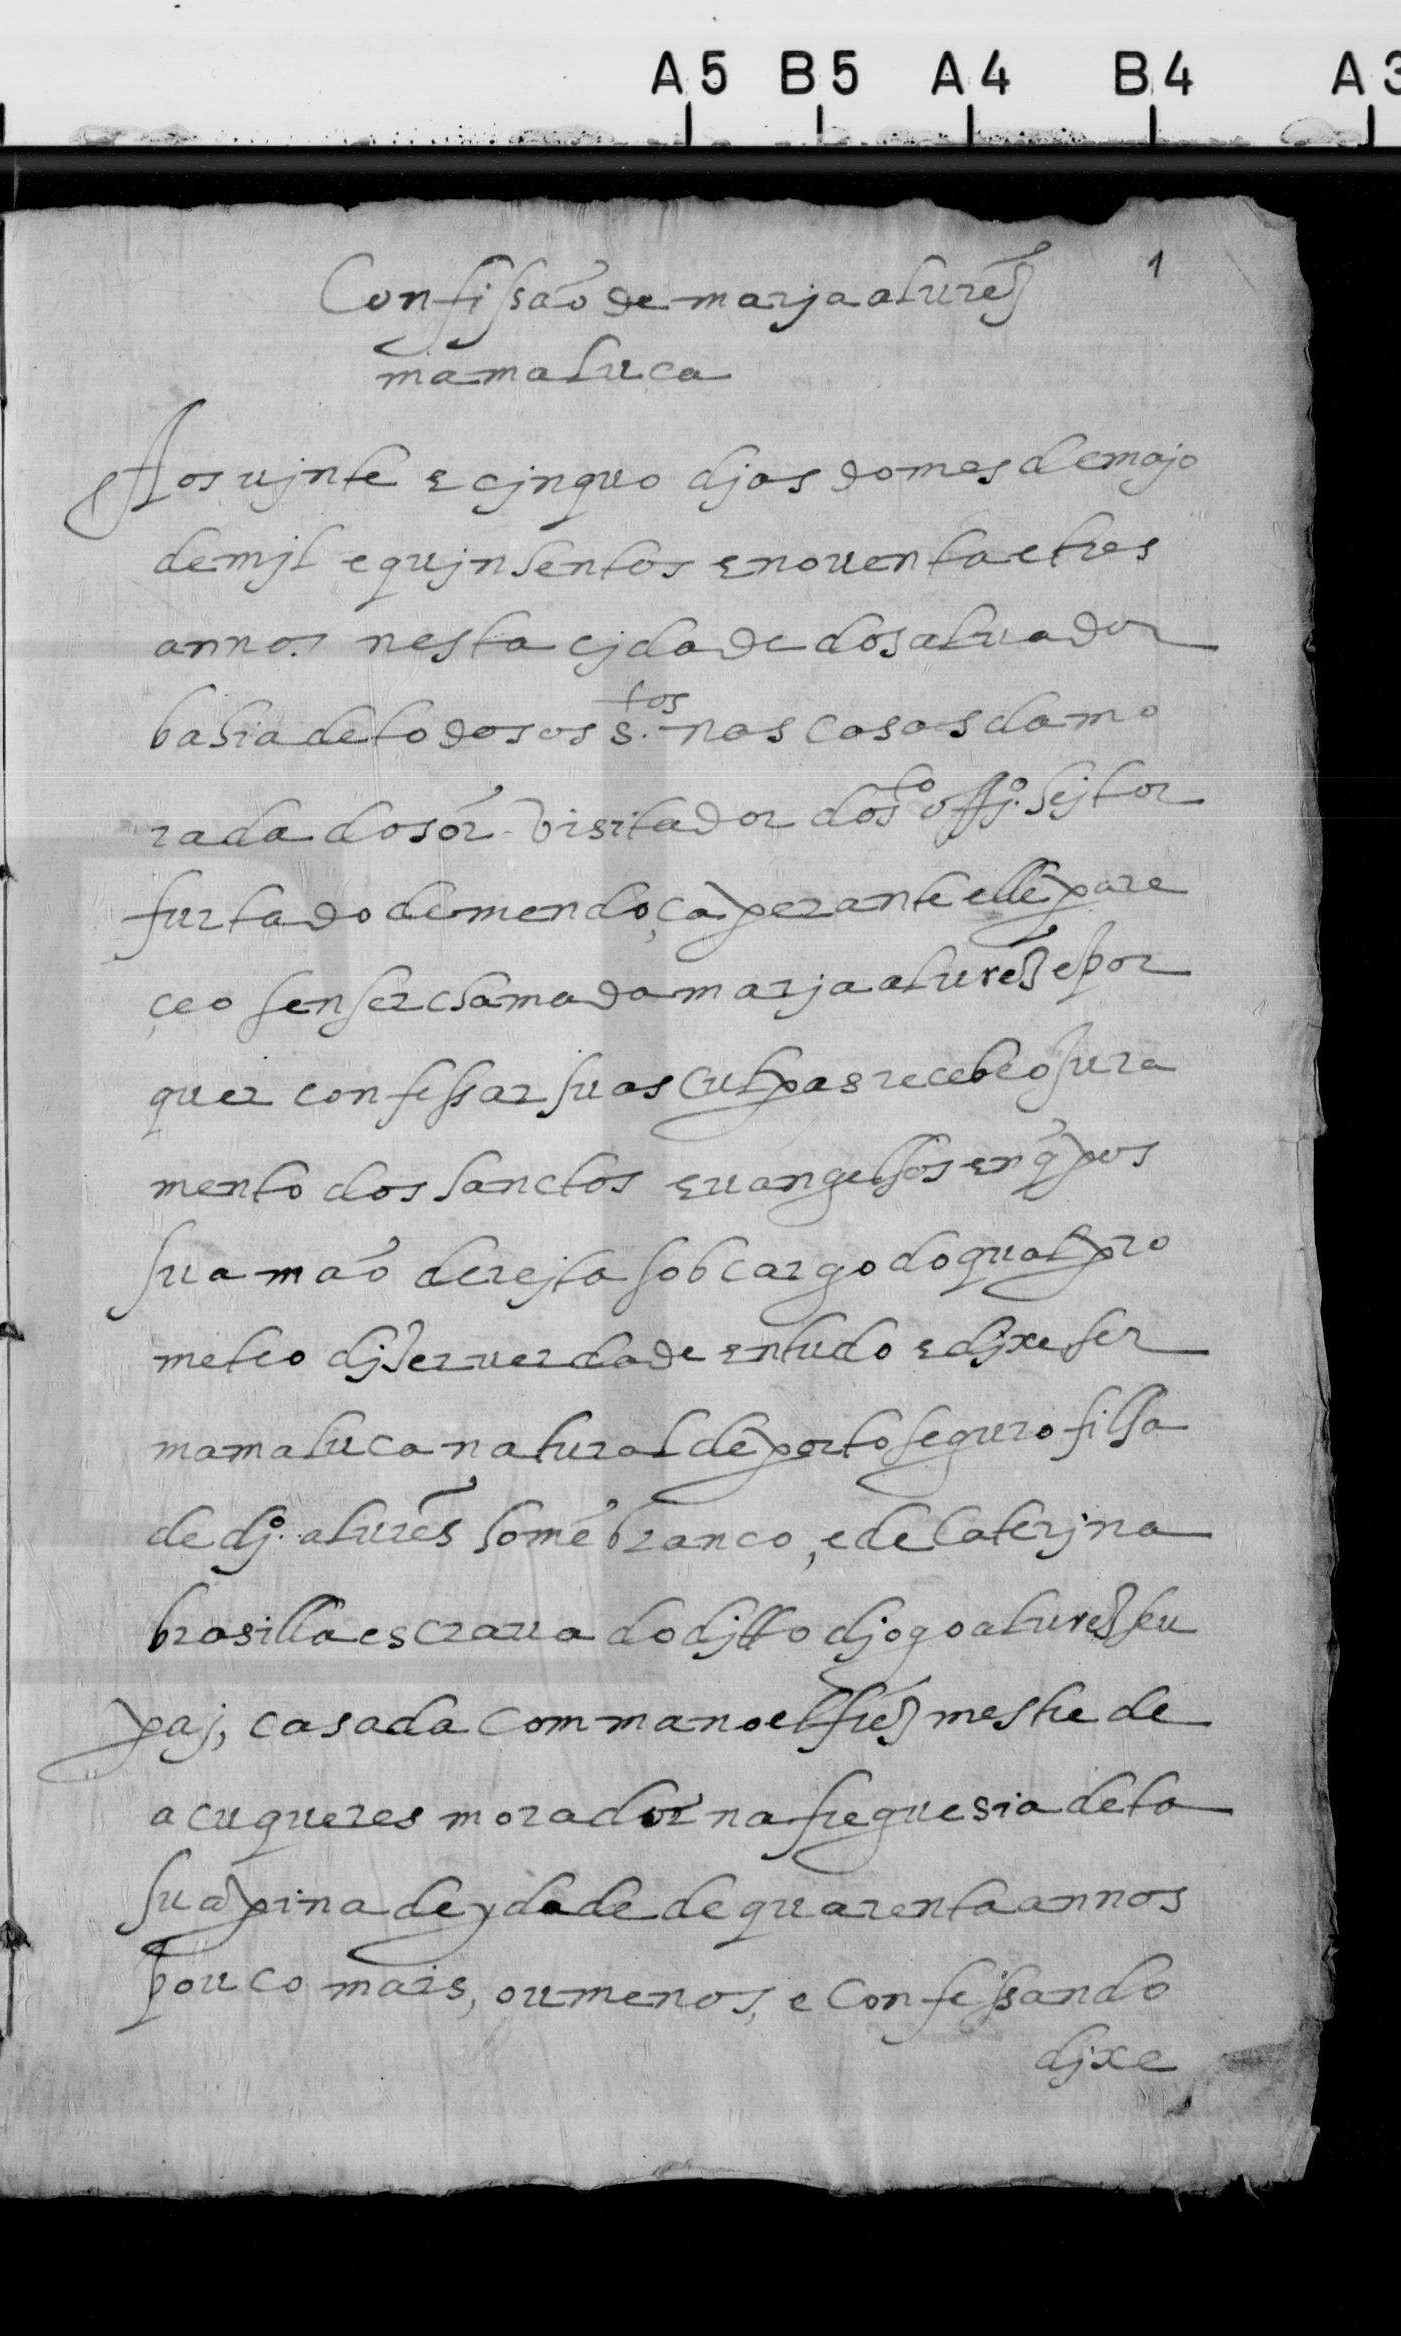 A5 B5 A4 B4 A3
1
Confissão de marja alurez̃
mamaluca
Aos vjnte e cjnquo djas do mes de majo
de mjl e qujnhentos e noventa e tres
annos nesta cjdade do saluador
bahia de todos os s.tos nas casas da mo
rada do sõr visitador do s.to offj.º hejtor
furtado de mendoça perante elle pare
çeo sen ser chamada marja alurez e por
quer confessar suas culpas recebeo jura
mento dos sanctos euangelhos en q̃ pos
sua mão derejta sob cargo do qual pro
meteo djzer verdade en tudo e djxe ser
mamaluca natural de porto seguro filha
de dj.º alurẽs homẽ branco, e de Caterjna
brasilla escrava do djtto djogo alurez seu
paj, casada com manoel frz̃ mestre de
acuqueres morador na freguesia de ta
suapina de ydade de quarenta annos
pouco mais, ou menos, e confessando
djxe